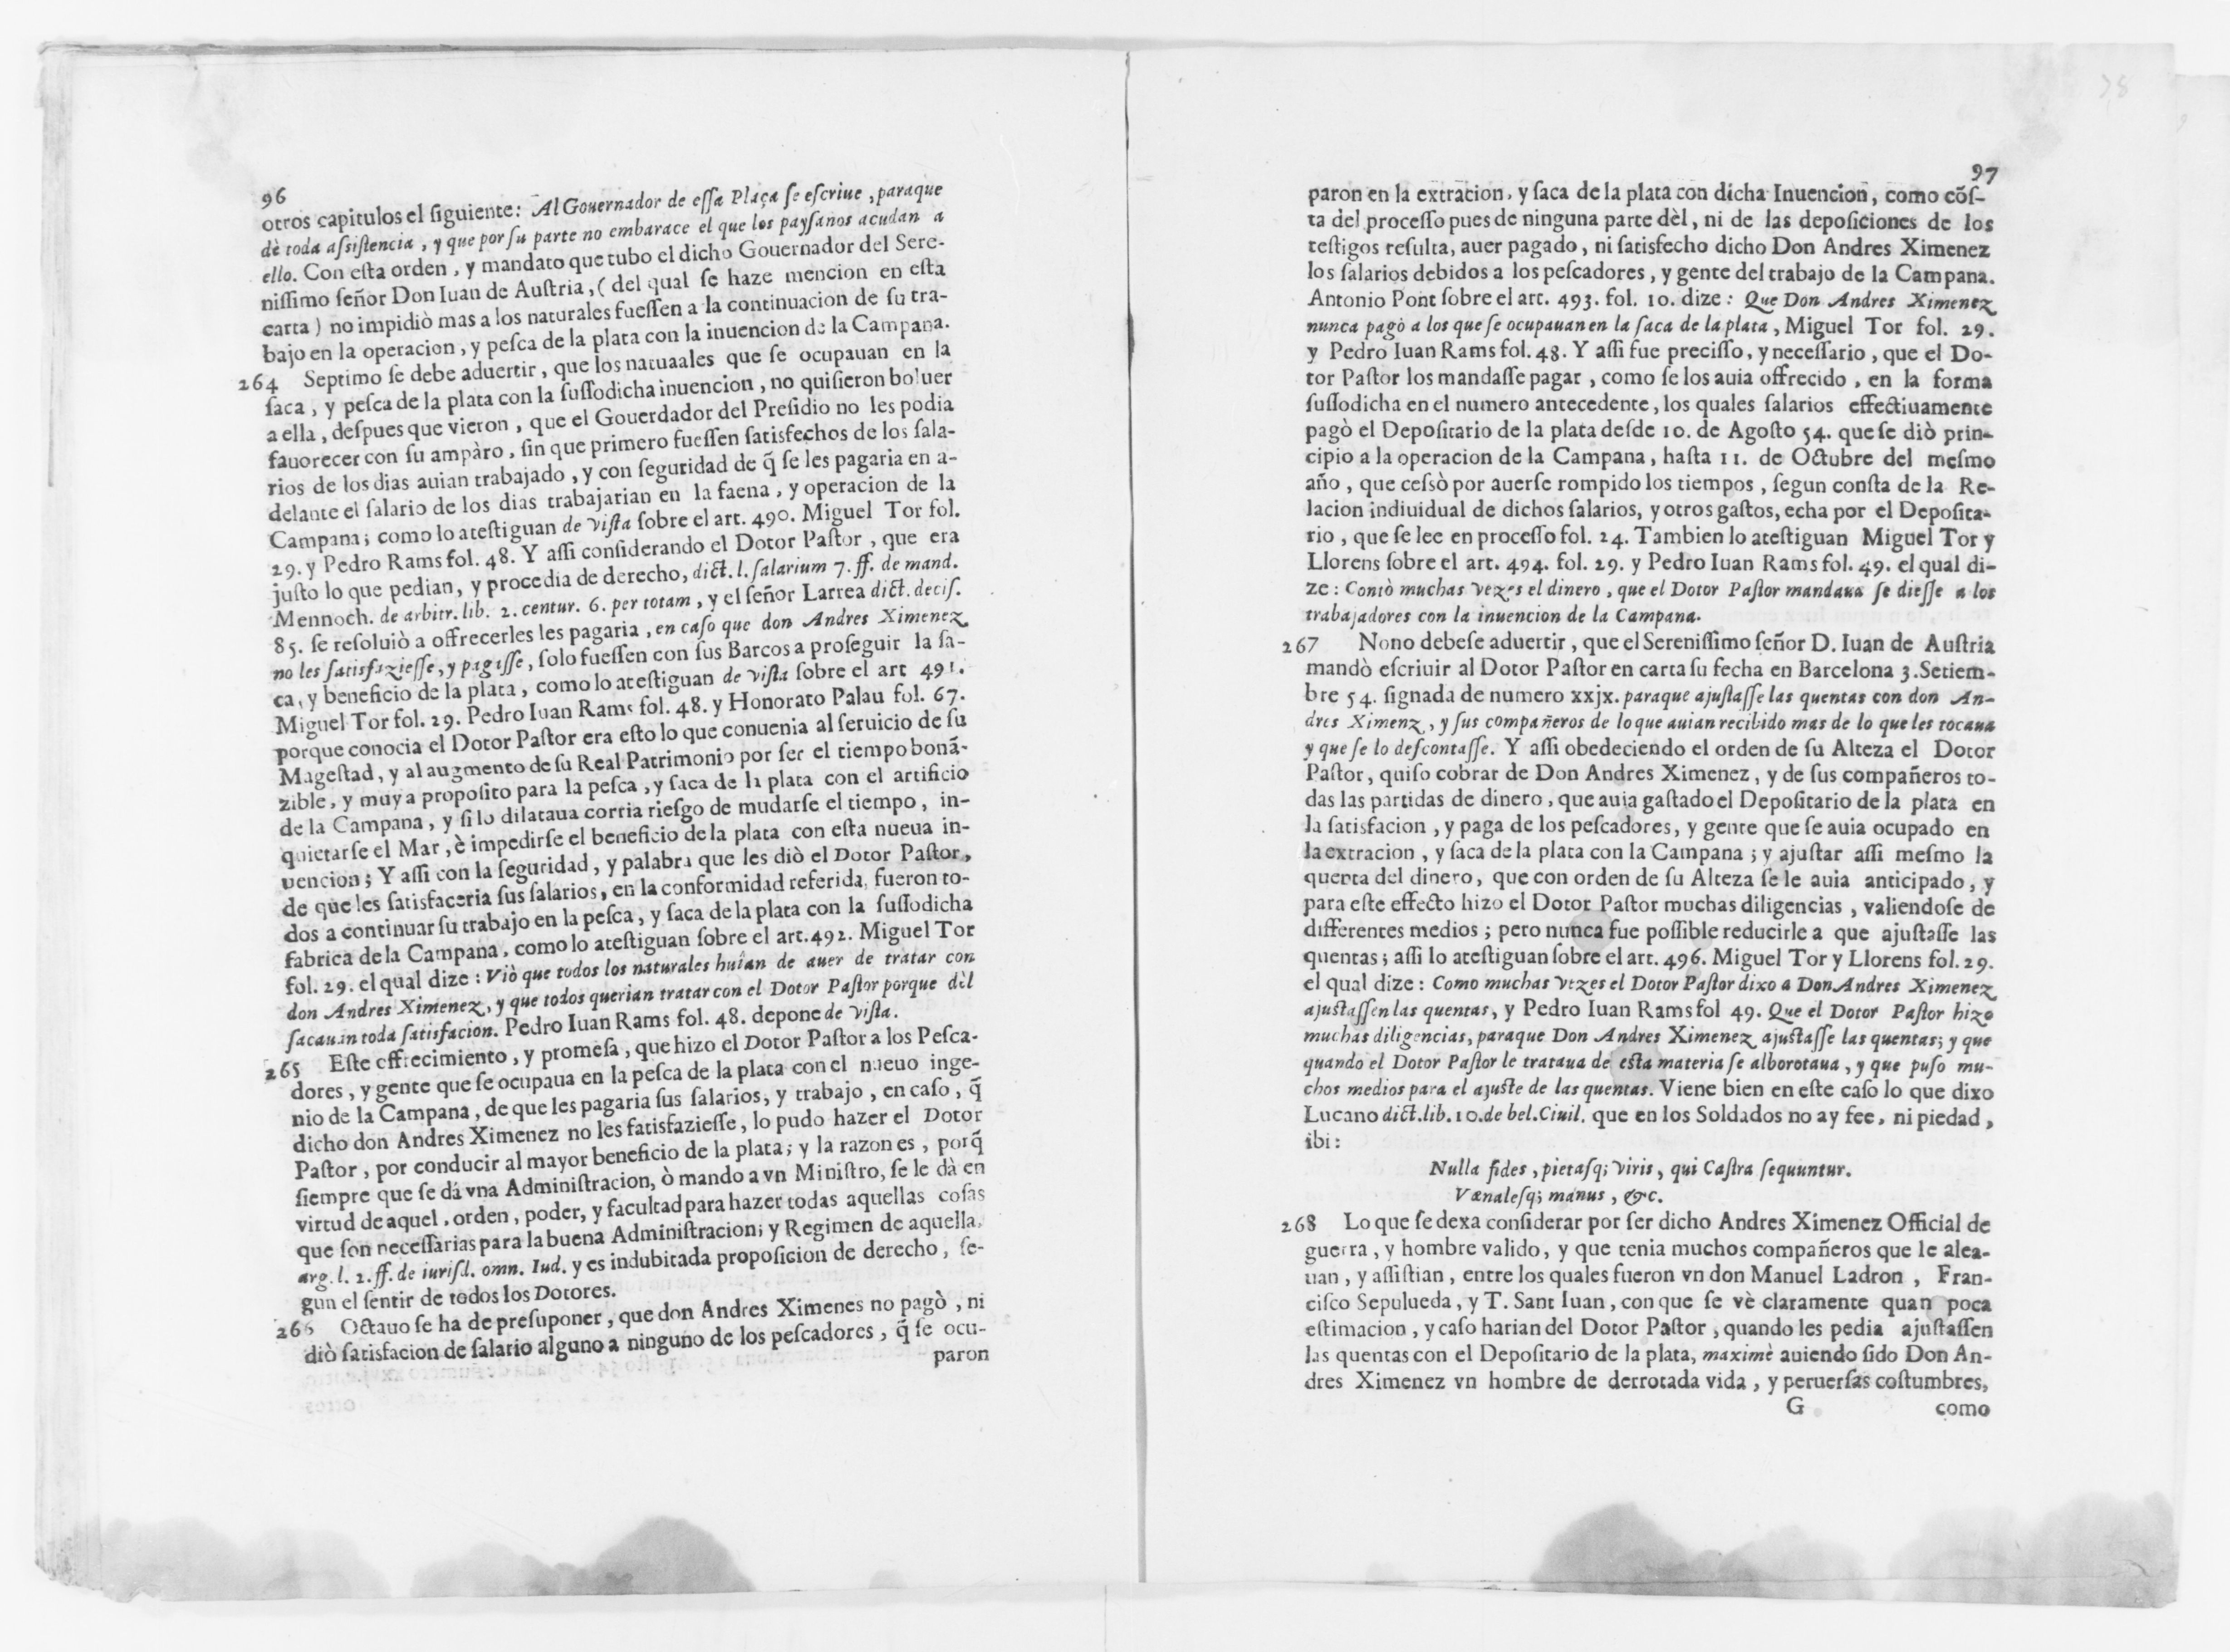 96
otros capitulos el siguiente: Al Gouernador de eſſa Plaça ſe eſcriue, paraque
dè toda aſsiſtencia, y que por ſu parte no embarace el que los payſanos acudan a
ello. Con eſta orden, y mandato que tubo el dicho Gouernador del Sere-
niſſimo ſeñor Don Iuan de Auſtria, ( del qual ſe haze mencion en eſta
carta ) no impidiò mas a los naturales fueſſen a la continuacion de ſu tra-
bajo en la operacion, y peſca de la plata con la inuencion de la Campana.
264 Septimo ſe debe aduertir, que los natuaales que ſe ocupauan en la
ſaca, y peſca de la plata con la ſuſſodicha inuencion, no quiſieron boluer
a ella, deſpues que vieron, que el Gouerdador del Preſidio no les podia
fauorecer con ſu ampàro, ſin que primero fueſſen ſatisfechos de los ſala-
rios de los dias auian trabajado, y con ſeguridad de q̃ ſe les pagaria en a-
delante el ſalario de los dias trabajarian en la faena, y operacion de la
Campana; como lo ateſtiguan de viſta ſobre el art. 490. Miguel Tor fol.
29. y Pedro Rams fol. 48. Y aſſi conſiderando el Dotor Paſtor, que era
juſto lo que pedian, y procedia de derecho, dict. l. ſalarium 7. ff. de mand.
Mennoch. de arbitr. lib. 2. centur. 6. per totam, y el ſeñor Larrea dict. deciſ.
85. ſe reſoluiò a offrecerles les pagaria, en caſo que don Andres Ximenez
no les ſatisfazieſſe, y pagaſſe, ſolo fueſſen con ſus Barcos a proſeguir la ſa-
ca, y beneficio de la plata, como lo ateſtiguan de viſta ſobre el art 491.
Miguel Tor fol. 29. Pedro Iuan Rams fol. 48. y Honorato Palau fol. 67.
porque conocia el Dotor Paſtor era eſto lo que conuenia al ſeruicio de ſu
Mageſtad, y al augmento de ſu Real Patrimonio por ſer el tiempo bonã-
zible, y muy a propoſito para la peſca, y ſaca de la plata con el artificio
de la Campana, y ſi lo dilataua corria rieſgo de mudarſe el tiempo, in-
quietarſe el Mar, è impedirſe el beneficio de la plata con eſta nueua in-
uencion; Y aſſi con la ſeguridad, y palabra que les diò el Dotor Paſtor,
de que les ſatisfaceria ſus ſalarios, en la conformidad referida, fueron to-
dos a continuar ſu trabajo en la peſca, y ſaca de la plata con la ſuſſodicha
fabrica de la Campana, como lo ateſtiguan ſobre el art. 492. Miguel Tor
fol. 29. el qual dize: Viò que todos los naturales huìan de auer de tratar con
don Andres Ximenez, y que todos querian tratar con el Dotor Paſtor porque dèl
ſacauan toda ſatisfacion. Pedro Iuan Rams fol. 48. depone de viſta.
265 Eſte offrecimiento, y promeſa, que hizo el Dotor Paſtor a los Peſca-
dores, y gente que ſe ocupaua en la peſca de la plata con el nueuo inge-
nio de la Campana, de que les pagaria ſus ſalarios, y trabajo, en caſo, q̃
dicho don Andres Ximenez no les ſatisfazieſſe, lo pudo hazer el Dotor
Paſtor, por conducir al mayor beneficio de la plata; y la razon es, porq̃
ſiempre que ſe dá vna Adminiſtracion, ò mando a vn Miniſtro, ſe le dà en
virtud de aquel, orden, poder, y facultad para hazer todas aquellas coſas
que ſon neceſſarias para la buena Adminiſtracion, y Regimen de aquella,
arg. l. 2. ff. de iuriſd. omn. Iud. y es indubitada propoſicion de derecho, ſe-
gun el ſentir de todos los Dotores.
266 Octauo ſe ha de preſuponer, que don Andres Ximenes no pagò, ni
diò ſatisfacion de ſalario alguno a ninguno de los peſcadores, q̃ ſe ocu-
paron
97
paron en la extracion, y ſaca de la plata con dicha Inuencion, como cõſ-
ta del proceſſo pues de ninguna parte dèl, ni de las depoſiciones de los
teſtigos reſulta, auer pagado, ni ſatisfecho dicho Don Andres Ximenez
los ſalarios debidos a los peſcadores, y gente del trabajo de la Campana.
Antonio Pont ſobre el art. 493. fol. 10. dize: Que Don Andres Ximenez
nunca pagò a los que ſe ocupauan en la ſaca de la plata, Miguel Tor fol. 29.
y Pedro Iuan Rams fol. 48. Y aſſi fue preciſſo, y neceſſario, que el Do-
tor Paſtor los mandaſſe pagar, como ſe los auia offrecido, en la forma
ſuſſodicha en el numero antecedente, los quales ſalarios effectiuamente
pagò el Depoſitario de la plata deſde 10. de Agoſto 54. que ſe diò prin-
cipio a la operacion de la Campana, haſta 11. de Octubre del meſmo
año, que ceſsò por auerſe rompido los tiempos, ſegun conſta de la Re-
lacion indiuidual de dichos ſalarios, y otros gaſtos, echa por el Depoſita-
rio, que ſe lee en proceſſo fol. 24. Tambien lo ateſtiguan Miguel Tor y
Llorens ſobre el art. 494. fol. 29. y Pedro Iuan Rams fol. 49. el qual di-
ze: Contò muchas vezes el dinero, que el Dotor Paſtor mandaua ſe dieſſe a los
trabajadores con la inuencion de la Campana.
267 Nono debeſe aduertir, que el Sereniſſimo ſeñor D. Iuan de Auſtria
mandò eſcriuir al Dotor Paſtor en carta ſu fecha en Barcelona 3. Setiem-
bre 54. ſignada de numero xxjx. paraque ajuſtaſſe las quentas con don An-
dres Ximenz, y ſus compañeros de lo que auian recibido mas de lo que les tocaua
y que ſe lo deſcontaſſe. Y aſſi obedeciendo el orden de ſu Alteza el Dotor
Paſtor, quiſo cobrar de Don Andres Ximenez, y de ſus compañeros to-
das las partidas de dinero, que auia gaſtado el Depoſitario de la plata en
la ſatisfacion, y paga de los peſcadores, y gente que ſe auia ocupado en
la extracion, y ſaca de la plata con la Campana; y ajuſtar aſſi meſmo la
quenta del dinero, que con orden de ſu Alteza ſe le auia anticipado, y
para eſte effecto hizo el Dotor Paſtor muchas diligencias, valiendoſe de
differentes medios; pero nunca fue poſſible reducirle a que ajuſtaſſe las
quentas; aſſi lo ateſtiguan ſobre el art. 496. Miguel Tor y Llorens fol. 29.
el qual dize: Como muchas vezes el Dotor Paſtor dixo a Don Andres Ximenez
ajuſtaſſen las quentas, y Pedro Iuan Rams fol 49. Que el Dotor Paſtor hizo
muchas diligencias, paraque Don Andres Ximenez ajuſtaſſe las quentas; y que
quando el Dotor Paſtor le trataua de eſta materia ſe alborotaua, y que puſo mu-
chos medios para el ajuſte de las quentas. Viene bien en eſte caſo lo que dixo
Lucano dict. lib. 10. de bel. Ciuil. que en los Soldados no ay fee, ni piedad,
ibi:
Nulla fides, pietaſq; viris, qui Caſtra ſequuntur.
Vænaleſq; manus, &c.
268 Lo que ſe dexa conſiderar por ſer dicho Andres Ximenez Official de
guerra, y hombre valido, y que tenia muchos compañeros que le alea-
uan, y aſſiſtian, entre los quales fueron vn don Manuel Ladron, Fran-
ciſco Sepulueda, y T. Sant Iuan, con que ſe vè claramente quan poca
eſtimacion, y caſo harian del Dotor Paſtor, quando les pedia ajuſtaſſen
las quentas con el Depoſitario de la plata, maximè auiendo ſido Don An-
dres Ximenez vn hombre de derrotada vida, y peruerſas coſtumbres,
G como